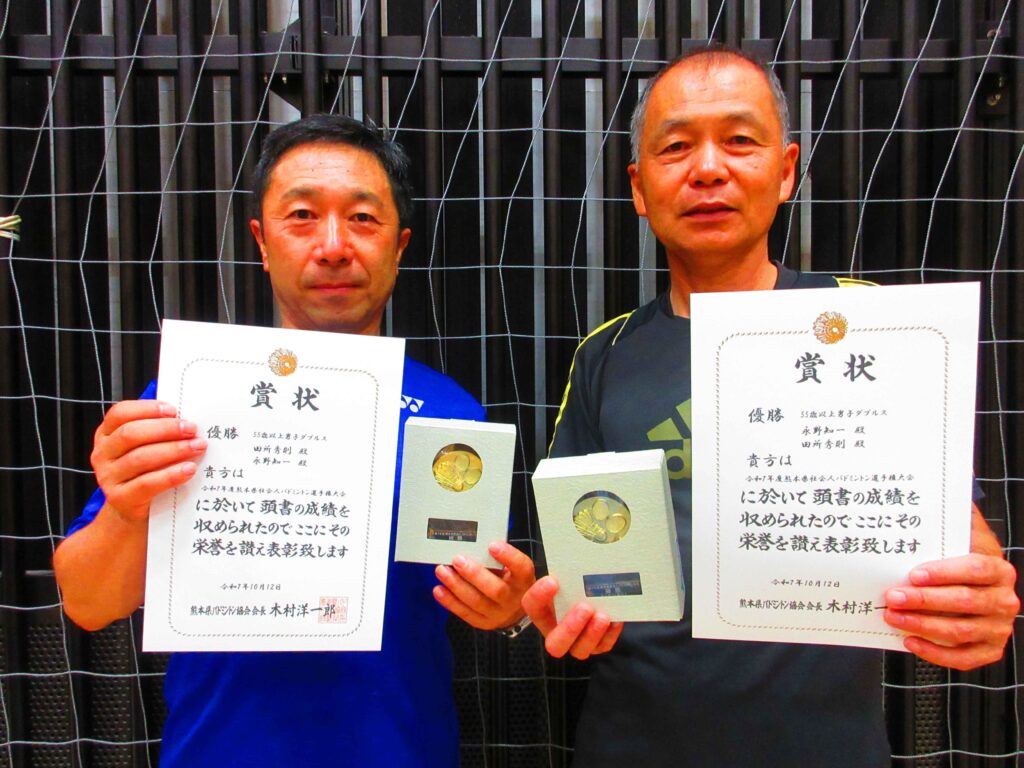 賞状
優勝 55歳以上男子ダブルス
田所秀則 殿
永野知一 殿
貴方は
令和7年度熊本県社会人バドミントン選手権大会
に於いて頭書の成績を
収められたのでここにその
栄誉を讃え表彰致します
令和7年10月12日
熊本県バドミントン協会会長 木村洋一郎
賞状
優勝 55歳以上男子ダブルス
永野知一 殿
田所秀則 殿
貴方は
令和7年度熊本県社会人バドミントン選手権大会
に於いて頭書の成績を
収められたのでここにその
栄誉を讃え表彰致します
令和7年10月12日
熊本県バドミントン協会会長 木村洋一